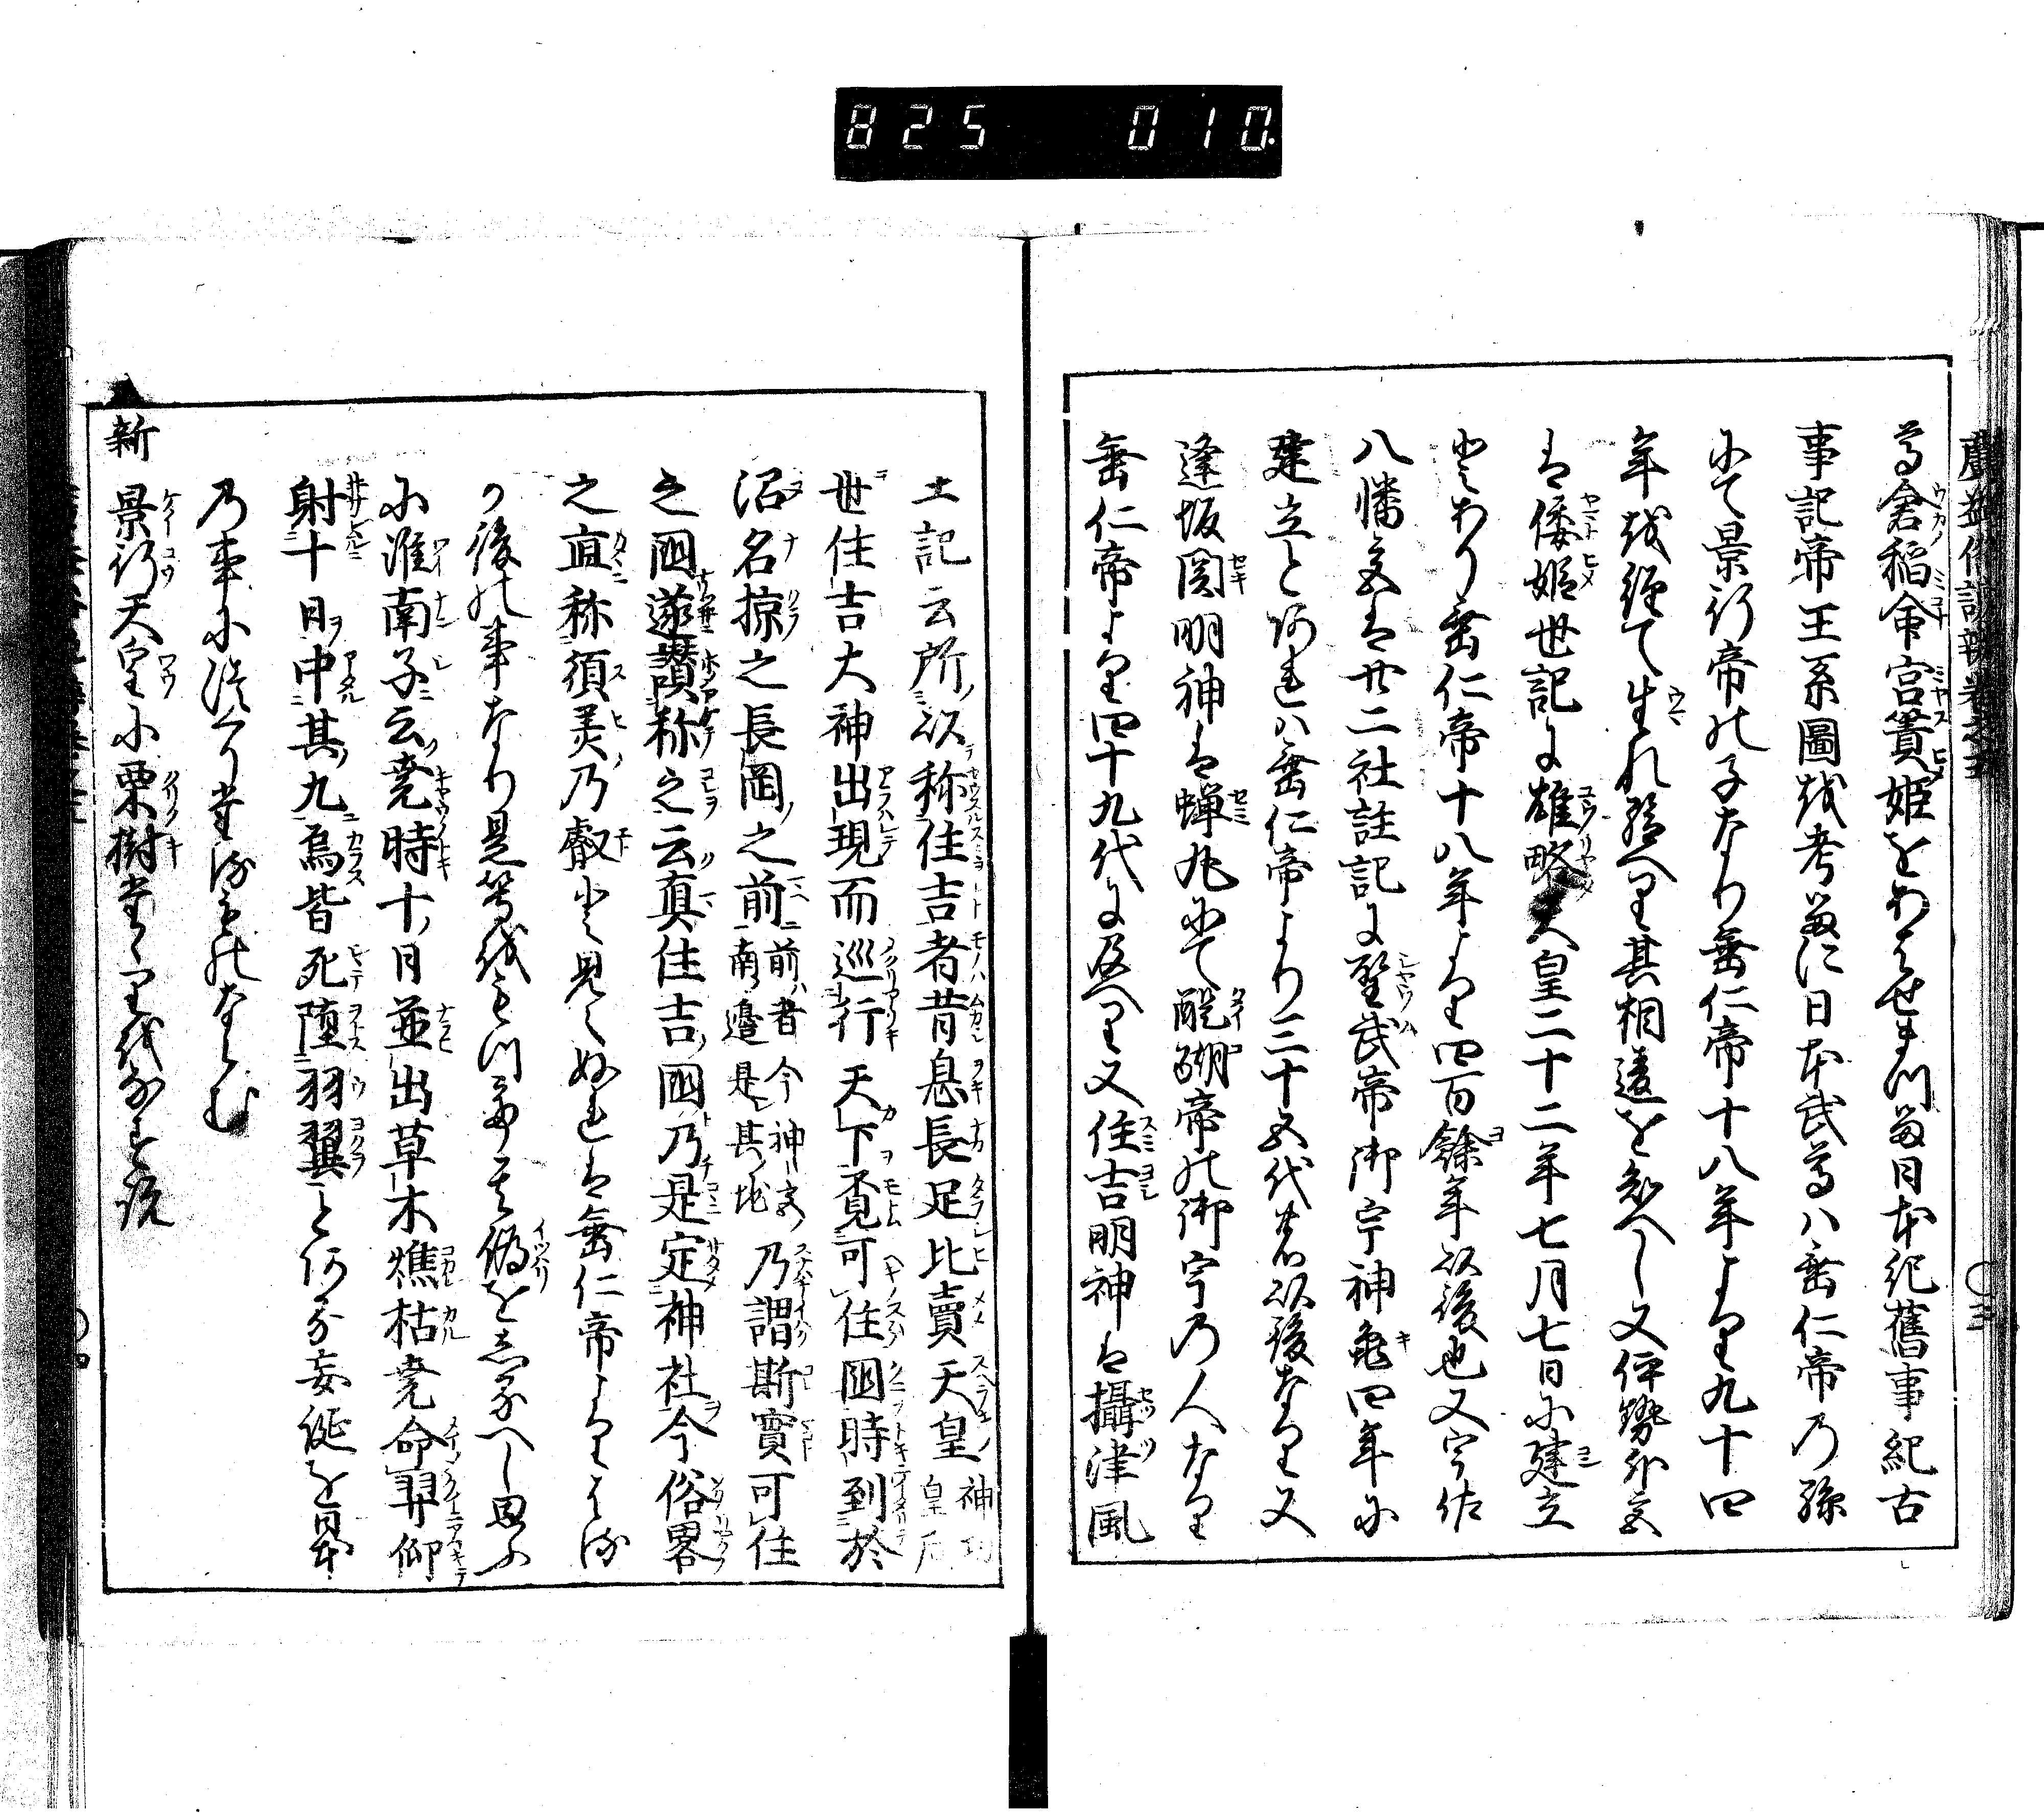 825 010
廣益俗説辨巻之五
尊倉稲命宮簀姫をあはせまつる日本紀舊事紀古
事記帝王系圖を考るに日本武尊ハ垂仁帝の孫
にて景行帝の子なり垂仁帝十八年より九十四
年を経て生れ給へり其相違を知へし又伊勢外宮
は倭姫世記に雄略天皇二十二年七月七日に建立
とあり垂仁帝十八年より四百餘年以後也又宇佐
八幡宮は廿二社註記に聖武帝御宇神亀四年に
建立とあれハ垂仁帝より三十五代以後なり又
逢坂関明神は蝉丸にて醍醐帝の御宇の人なり
垂仁帝より四十九代に及へり又住吉明神は攝津風
土記云所以称住吉者昔息長足比賣天皇神功皇后
世住吉大神出現而巡行天下覓可住國時到於
沼名掠之長岡之前前者今神宮南邊是其地乃謂斯實可住
之國遂讃称之云真住吉國乃是定神社今俗畧
之直称須美乃叡と見えぬれは垂仁帝よりはる
か後の事なり是等をもつて其偽をしるへし思ふ
に淮南子云堯時十日並出草木焦枯堯命羿仰
射十日中其九烏皆死堕羽翼とある妄誕を日本
の事に作り
新 景行天皇小栗樹
三
四